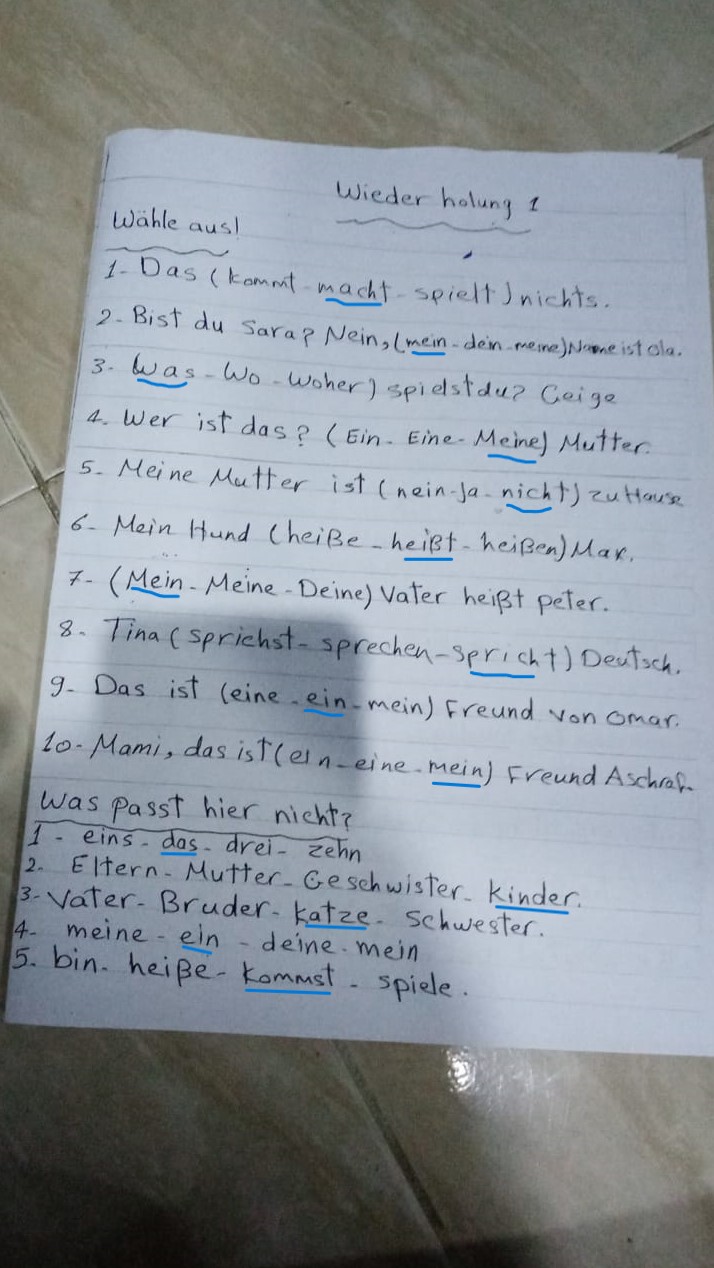 Wiederholung 1
Wähle aus!
1- Das (kommt - macht - spielt) nichts.
2- Bist du Sara? Nein, (mein - dein - meine) Name ist Ola.
3- (Was - Wo - Woher) spielst du? Geige
4. Wer ist das? (Ein - Eine - Meine) Mutter.
5- Meine Mutter ist (nein - ja - nicht) zu Hause
6- Mein Hund (heiße - heißt - heißen) Max.
7- (Mein - Meine - Deine) Vater heißt peter.
8- Tina (sprichst - sprechen - spricht) Deutsch.
9- Das ist (eine - ein - mein) Freund von Omar.
10- Mami, das ist (ein - eine - mein) Freund Aschraf.
Was passt hier nicht?
1- eins - das - drei - zehn
2. Eltern - Mutter - Geschwister - kinder.
3- Vater - Bruder - katze - schwester.
4- meine - ein - deine - mein
5. bin - heiße - kommst - spiele.